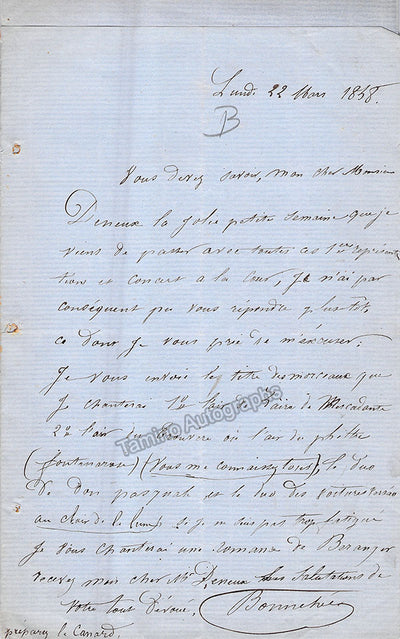 Lundi 22 Mars 1858.
B
Vous devez savoir, mon cher Monsieur
Deneux la jolie petite semaine que je
viens de passer avec toutes ces 1ères représenta
tion et concert a la cour, Je n'ai par
conséquent pu vous répondre plus tôt,
ce dont Je vous prie de m'excuser.
Je vous envoie le titre des morceaux que
Je chanterai 1° l'air de Mercadante
2° l'air du Trouvere ou l'air du
(Vous me connaissez tous), le duo
de Don pasquale et le duo des voitures versées
au clair de la lune, si je ne suis pas trop fatigué
Je vous chanterai une romance de Beranger
recevez mon cher Mr Deneux les salutations de
Votre tout dévoué. Bonnehée
preparez le Canard.
Tamino Autographs